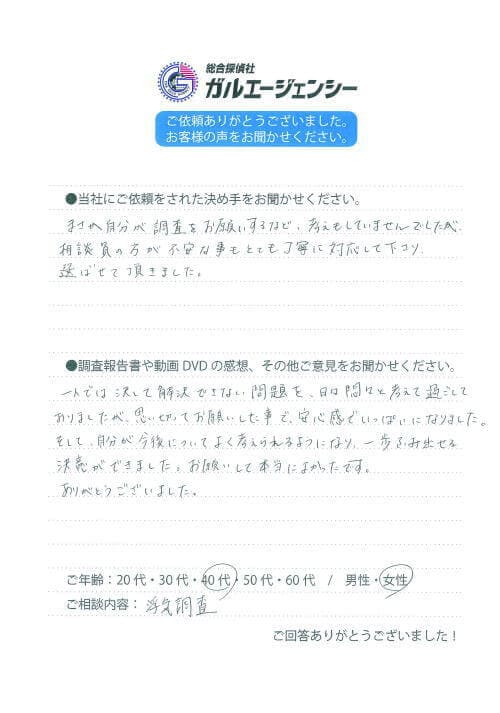 総合探偵社
ガルエージェンシー
ご依頼ありがとうございました。
お客様の声をお聞かせください。
●当社にご依頼をされた決め手をお聞かせください。
まさか自分が調査をお願いするなど、考えもしていませんでしたが、
相談員の方が不安な事もとても丁寧に対応して下さり、
選ばせて頂きました。
●調査報告書や動画DVDの感想、その他ご意見をお聞かせください。
一人では決して解決できない問題を、日々悶々と考えて過ごして
おりましたが、思い切ってお願いした事で、安心感でいっぱいになりました。
そして、自分が今後についてよく考えられるようになり、一歩ふみ出せる
決意ができました。お願いして本当によかったです。
ありがとうございました。
ご年齢：20代・30代・40代・50代・60代 / 男性・女性
ご相談内容：浮気調査
ご回答ありがとうございました！